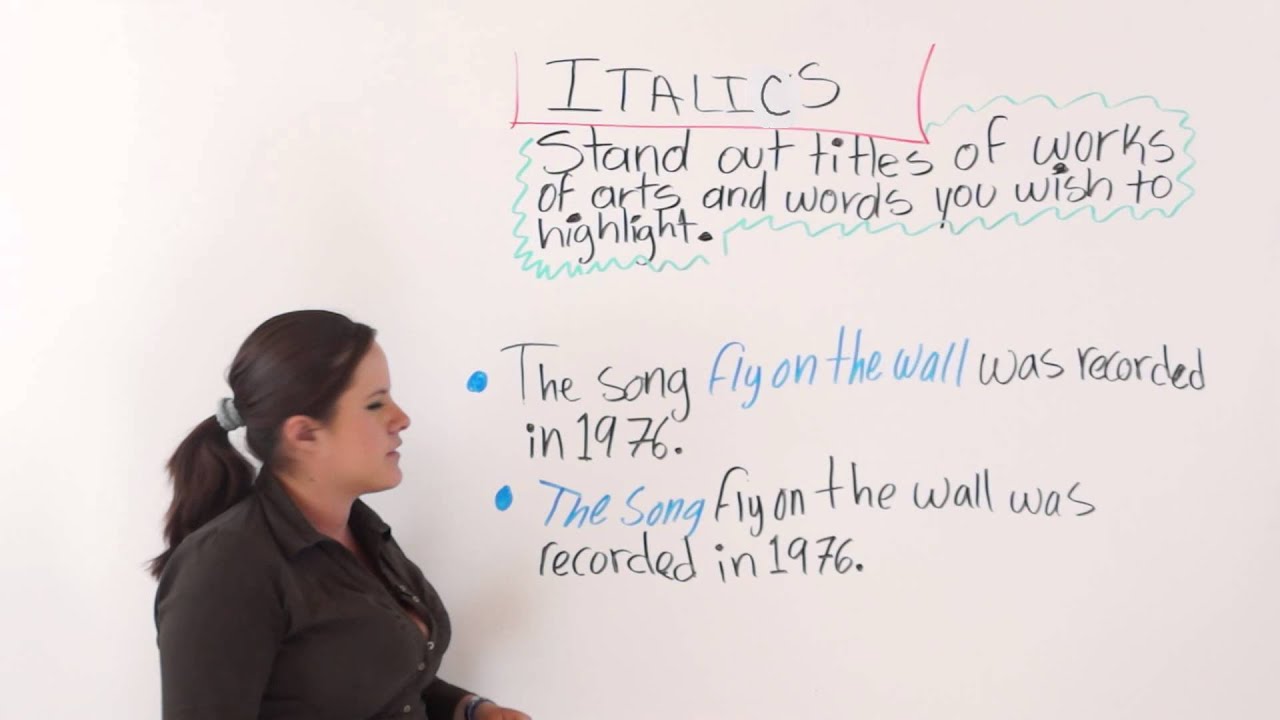 ITALICS
Stand out titles of works
of arts and words you wish to
highlight.
The song fly on the wall was recorded
in 1976.
The song fly on the wall was
recorded in 1976.